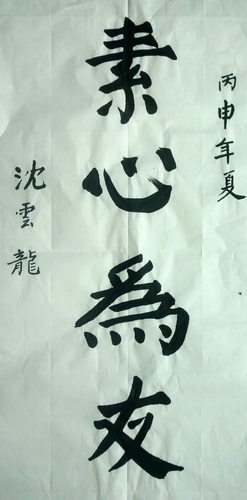 丙申年夏
素心為友
沈雲龍